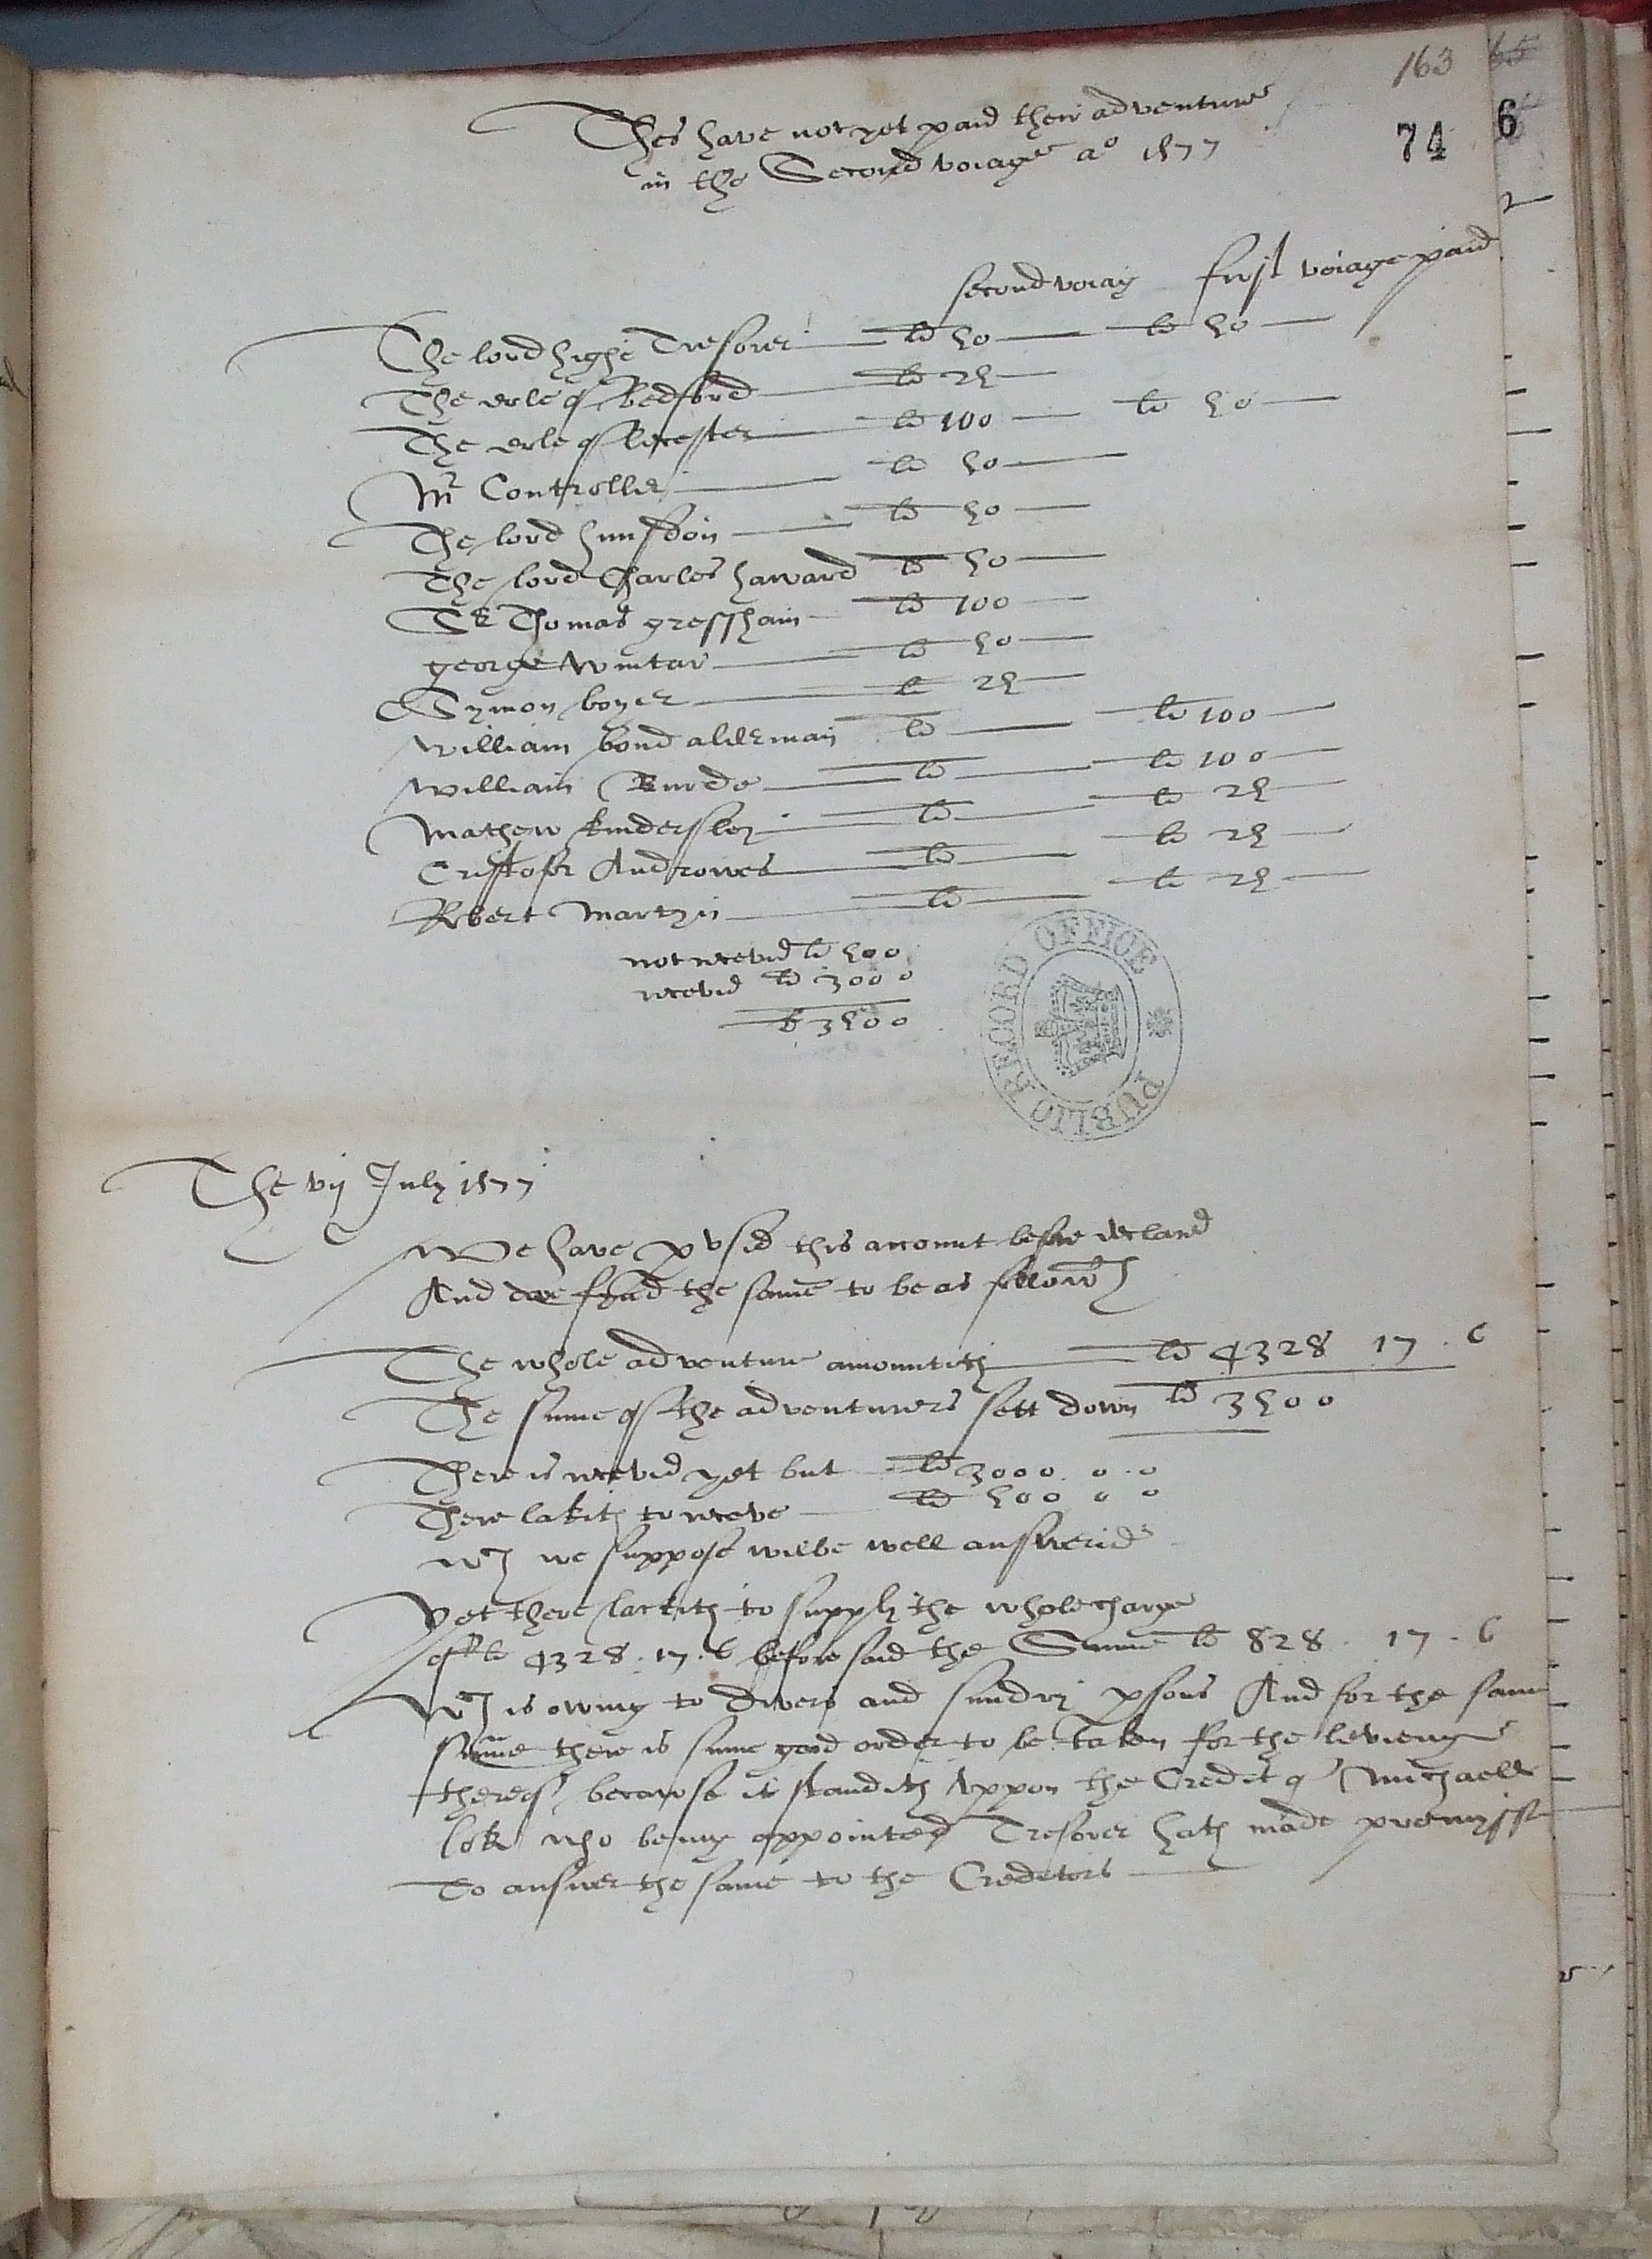 163 65
74 6
Thes have not yet paid their adventure
in the Second voiage aº 1577
second voiag first voiage paid
The lord highe Tresorer li 50 li 50
The erle of Bedford li 25
The erle of leicester li 100 li 50
Mr Controller li 50
The lord hunsdon li 50
The lord Charles haward li 50
Sr Thomas gressham li 100
george wintar li 50
Symon boyer li 25
william bond alderman li li 100
william Burde li li 100
Mathew kindersley li li 25
Cristofer Androwes li li 25
Robert Martyn li li 25
not receved li 500
receved li 3000
li 3500
PUBLIC RECORD OFFICE
The vij July 1577
We have pvsed this accompt before declard
And doe fynd the same to be as followth
The whole adventure amountith li 4328 17 . 6
The sume of the adventurers sett down li 3500
There is receved yet but li 3000 . 0 . 0
There lakith to receve li 500 0 0
wch we suppose wilbe well answerid
Yet there lackith to supply the whole charge
of li 4328 . 17 . 6 before said the Summe li 828 . 17 . 6
wch is owing to divers and sundry psons And for the same
summe there is some good order to be taken for the levieng
therof becawse it standith uppon the Credit of Michaell
lok who being appointed Tresorer hath made promisse
To answer the same to the Creditors